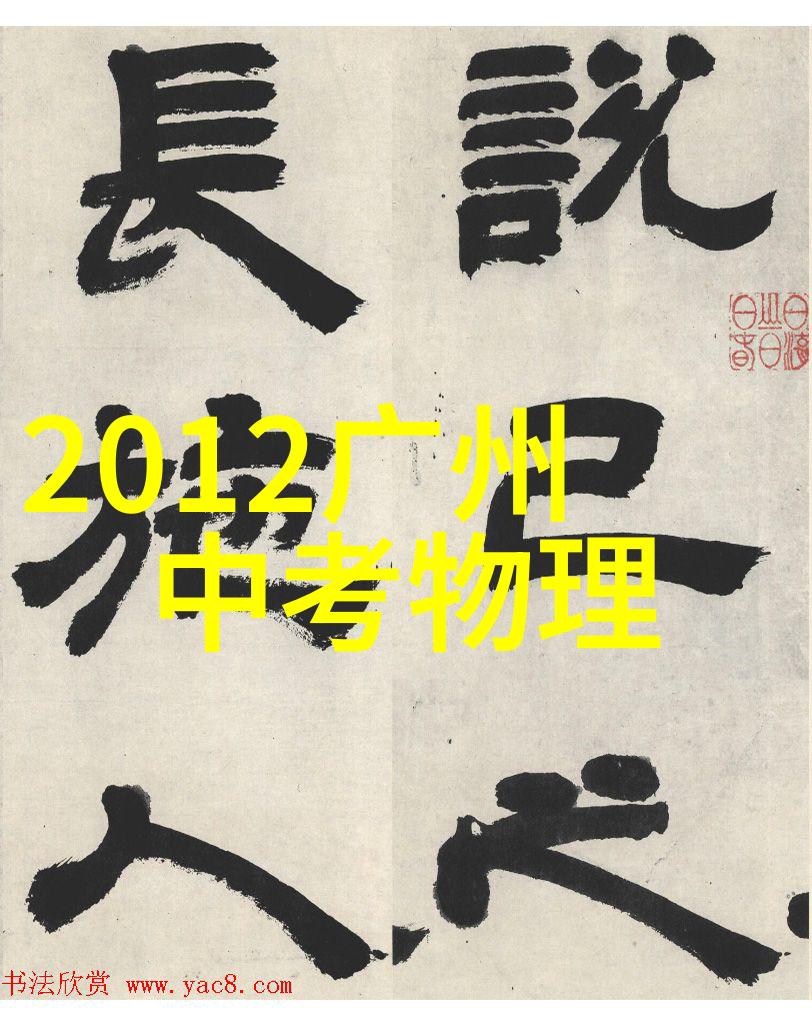 説
己
之
長
施
人
2012广州
中考物理
书法欣赏 www.yac8.com